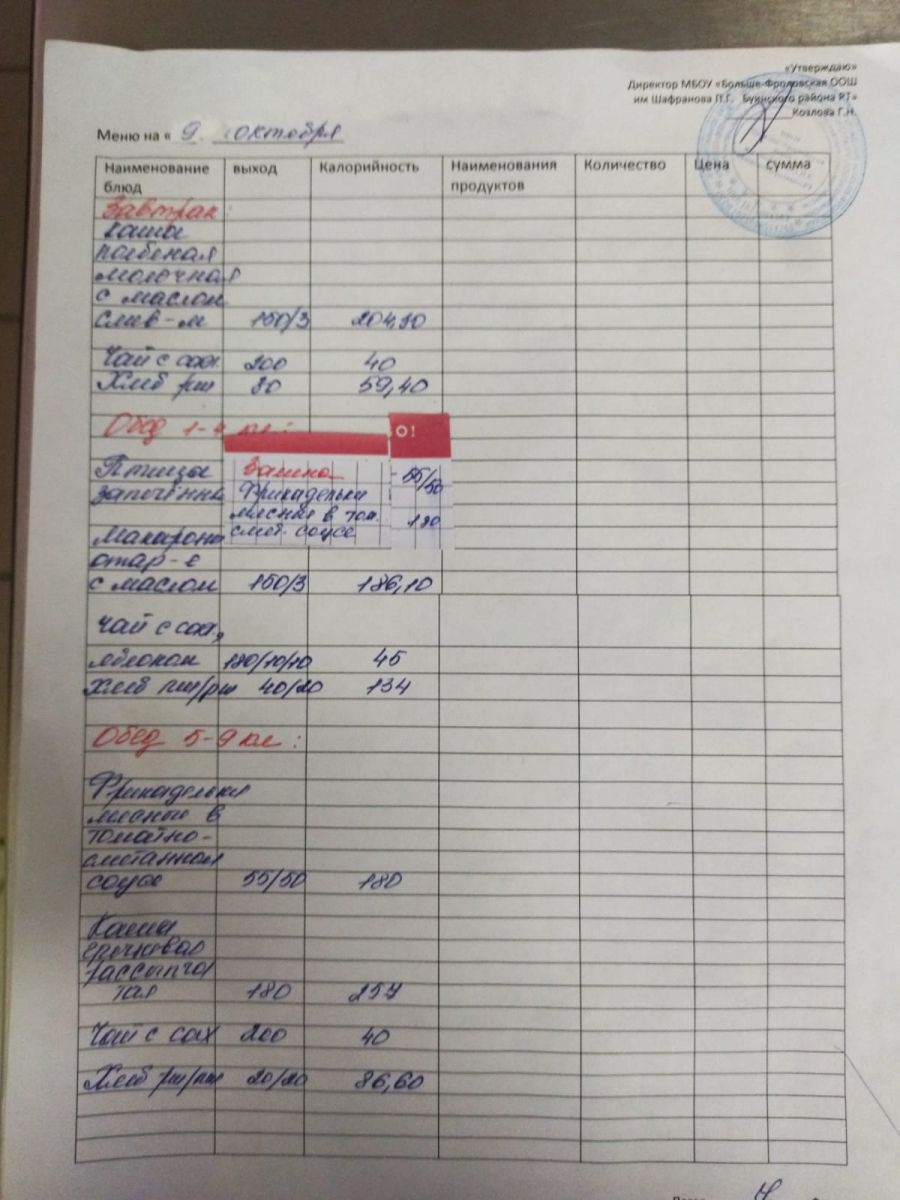 «Утверждаю»
Директор МБОУ «Больше-Фроловская ООШ
им Шафранова П.Г. Буинского района РТ»
Козлова Г.Н.
Меню на « 9 октября
Наименование блюд выход Калорийность Наименования продуктов Количество Цена сумма
Завтрак:
каша
молочная
с маслом
слив-м 150/3 204,90
Чай с сах. 200 40
Хлеб рж
59,40
Обед 1-4 кл: О!
Птицы Замена 55/50
запечённ Фрикадельки
мясные в том. 180
Макароны смет. соусе
отар-е
с маслом 150/3 186,10
чай с сах,
яблоком 180/10/10 45
Хлеб пш/рж 40/20 134
Обед 5-9 кл:
Фрикадельки
мясные в
томатно-
сметанном
соусе 55/50 180
Каша
гречневая
рассыпча
тая 180 257
Чай с сах 200 40
Хлеб рж/пш 20/20 86,60